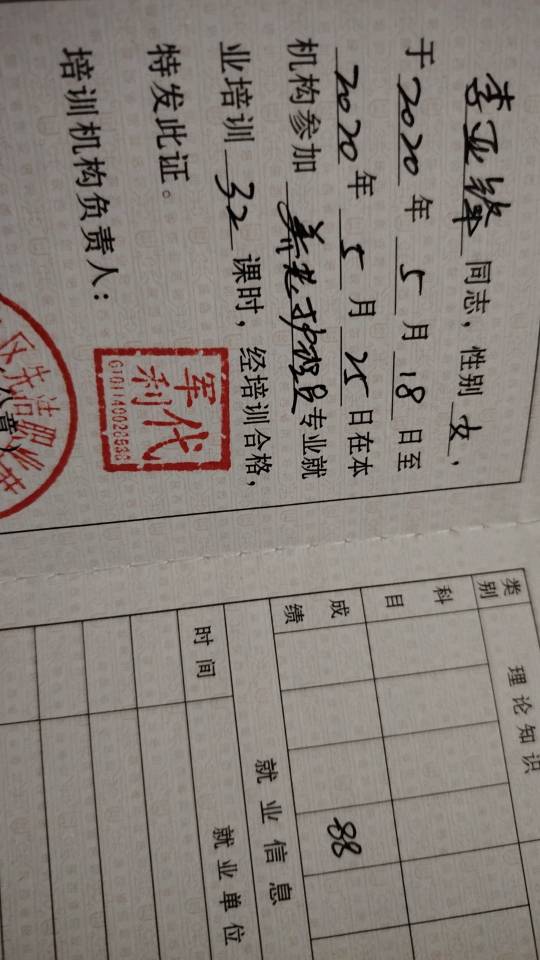 李亚锋 同志，性别 女，
于 2020 年 5 月 18 日至
2020 年 5 月 25 日在本
机构参加 养老护理员 专业就
业培训 32 课时，经培训合格，
特发此证。
培训机构负责人：
军代
利
类别
理论知识
科目
成绩
88
就业信息
时间
就业单位